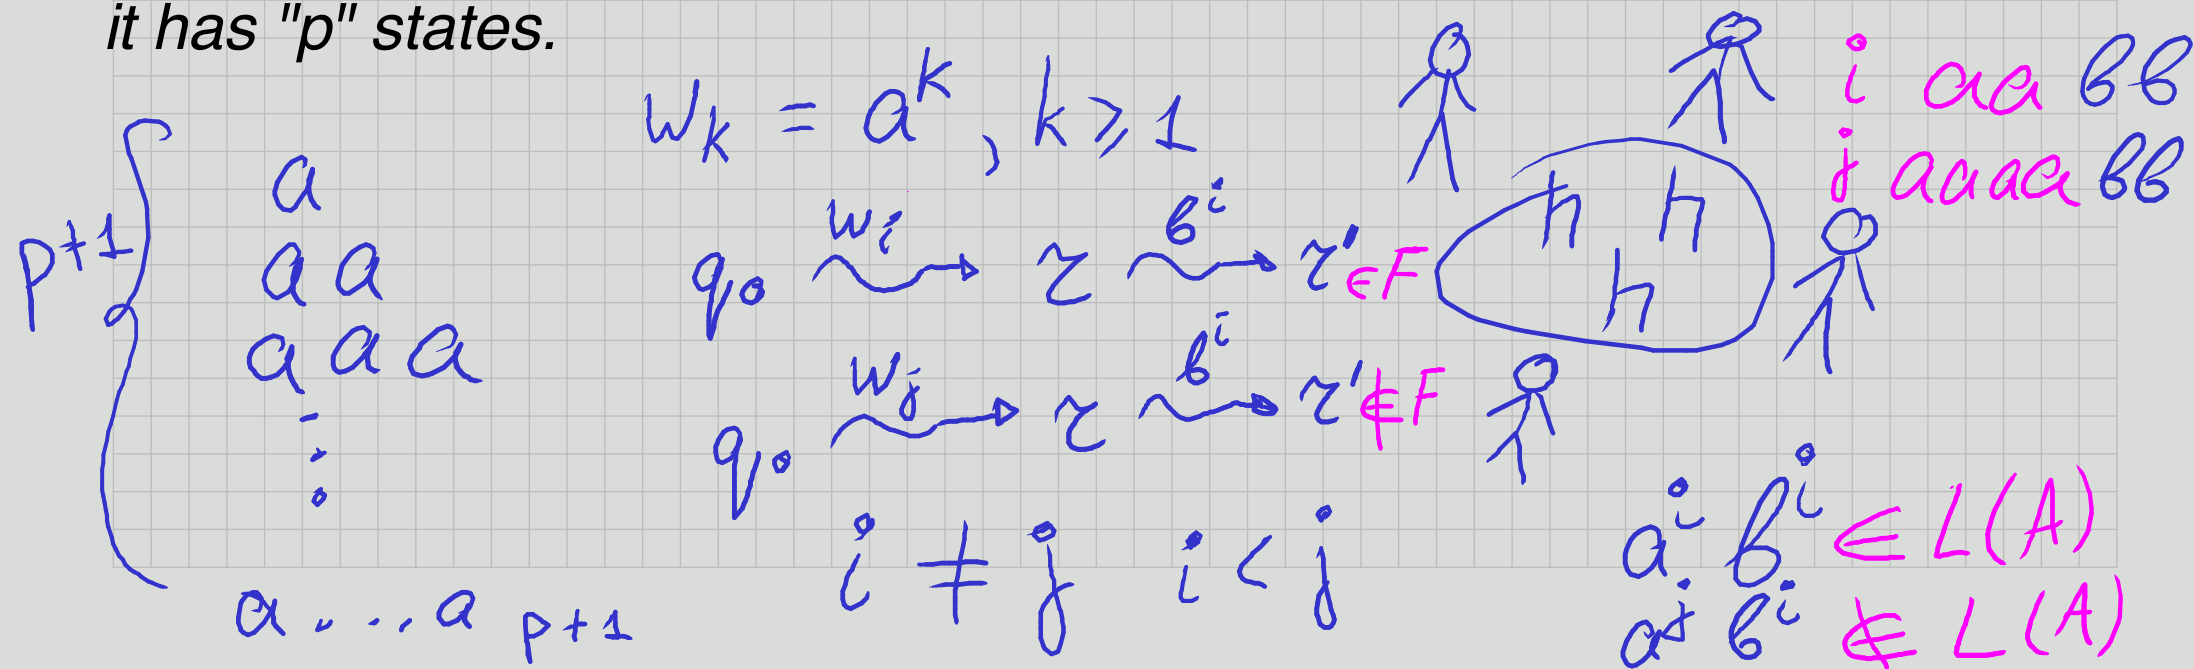 it has "p" states.
w_k = a^k, k ⩾ 1
p+1
a
a a
a a a
a . . . a p+1
q_0 w_i r b^i r' ∈F
q_0 w_j r b^i r' ∉F
i ≠ j i < j
h h
h
i aa bb
j aaaa bb
a^i b^i ∈ L(A)
a^j b^i ∉ L(A)